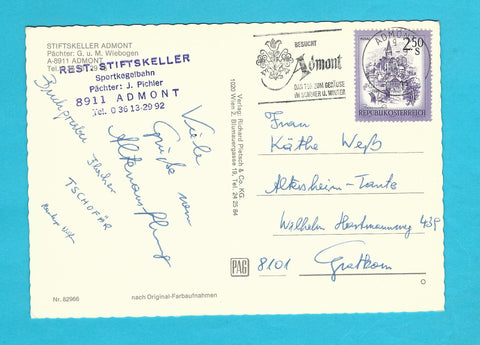 STIFTSKELLER ADMONT
Pächter: G. u. M. Wiebogen
A-8911 ADMONT
REST. STIFTSKELLER
Sportkegelbahn
Pächter: J. Pichler
8911 ADMONT
Tel. 0 36 13-29 92
Viele
Grüße vom
Altenausflug
TSCHOFÄR
Nr. 82966
nach Original-Farbaufnahmen
Verlag: Richard Pietsch & Co. KG.
1020 Wien 2, Blumauergasse 19, Tel. 24 25 84
PAG
BESUCHT
Admont
DAS TOR ZUM GESÄUSE
IM SOMMER U. WINTER
ADMONT
2.50
S
REPUBLIK ÖSTERREICH
Frau
Käthe Weß
Altersheim-Tante
Wilhelm Hartmannweg 439
8101 Gratkorn